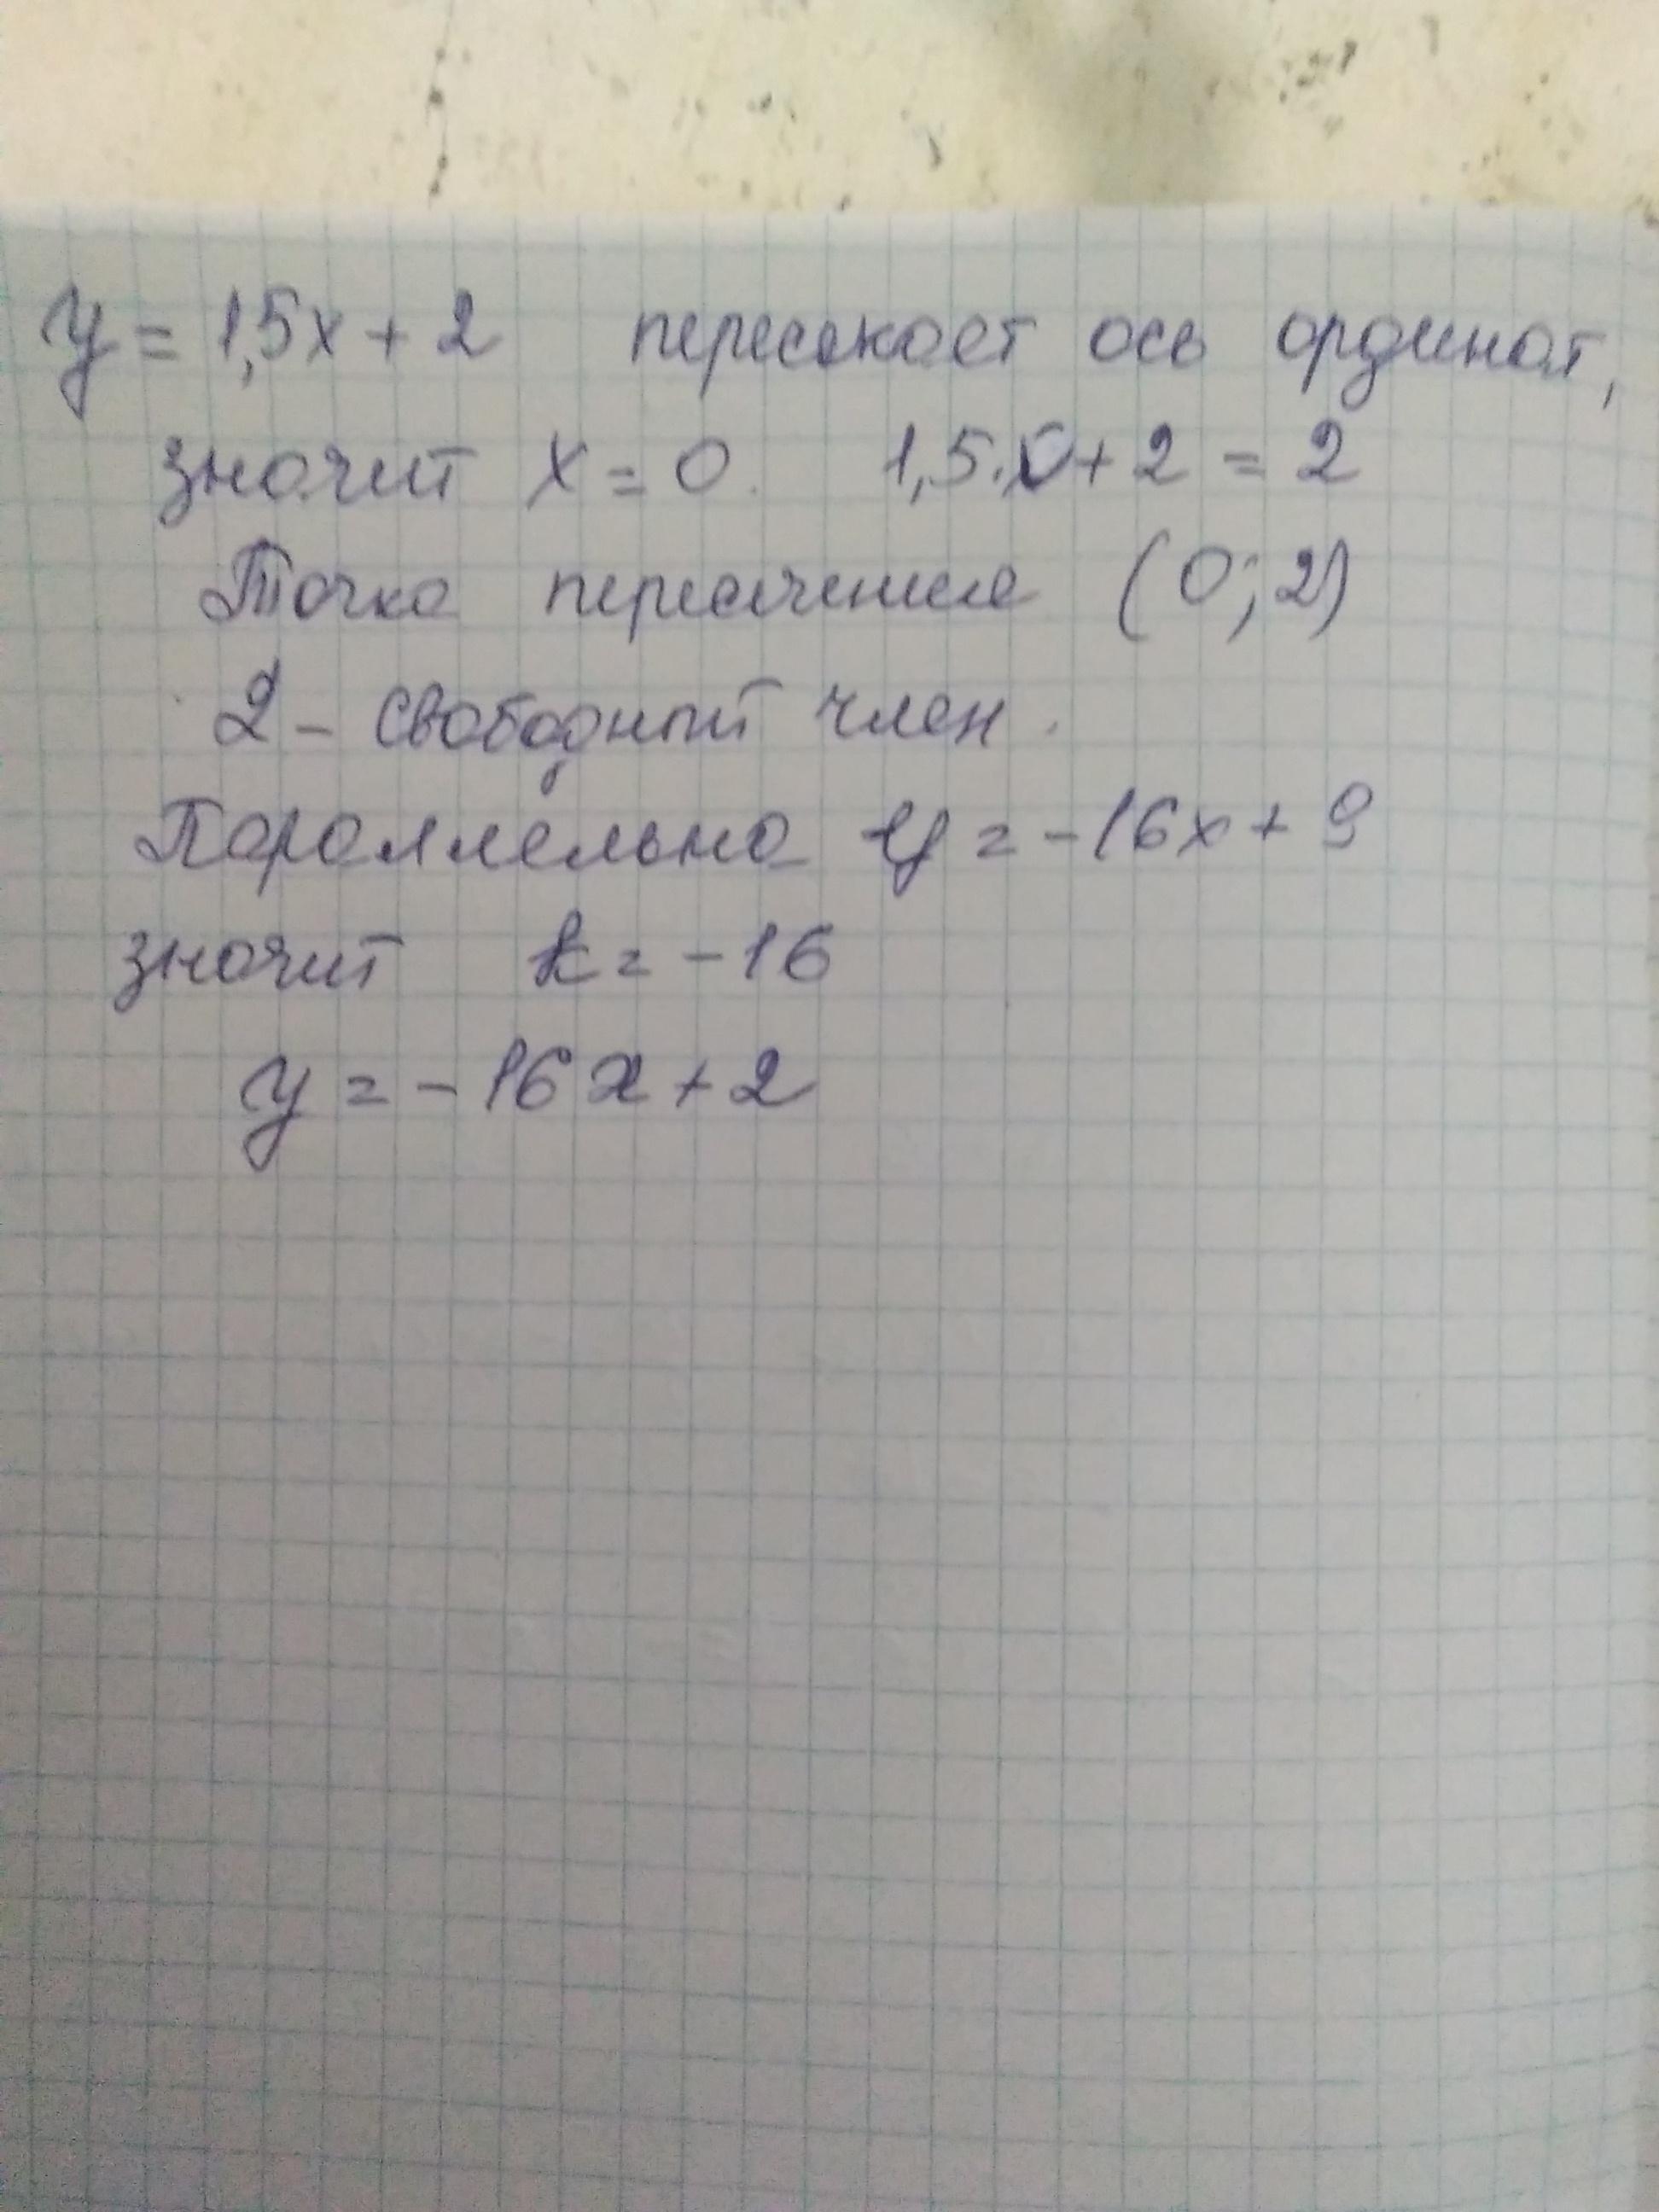 y = 1,5x + 2 пересекает ось ординат,
значит x = 0. 1,5·0 + 2 = 2
Точка пересечения (0; 2)
2 - свободный член.
Параллельно y = -16x + 9
значит k = -16
y = -16x + 2